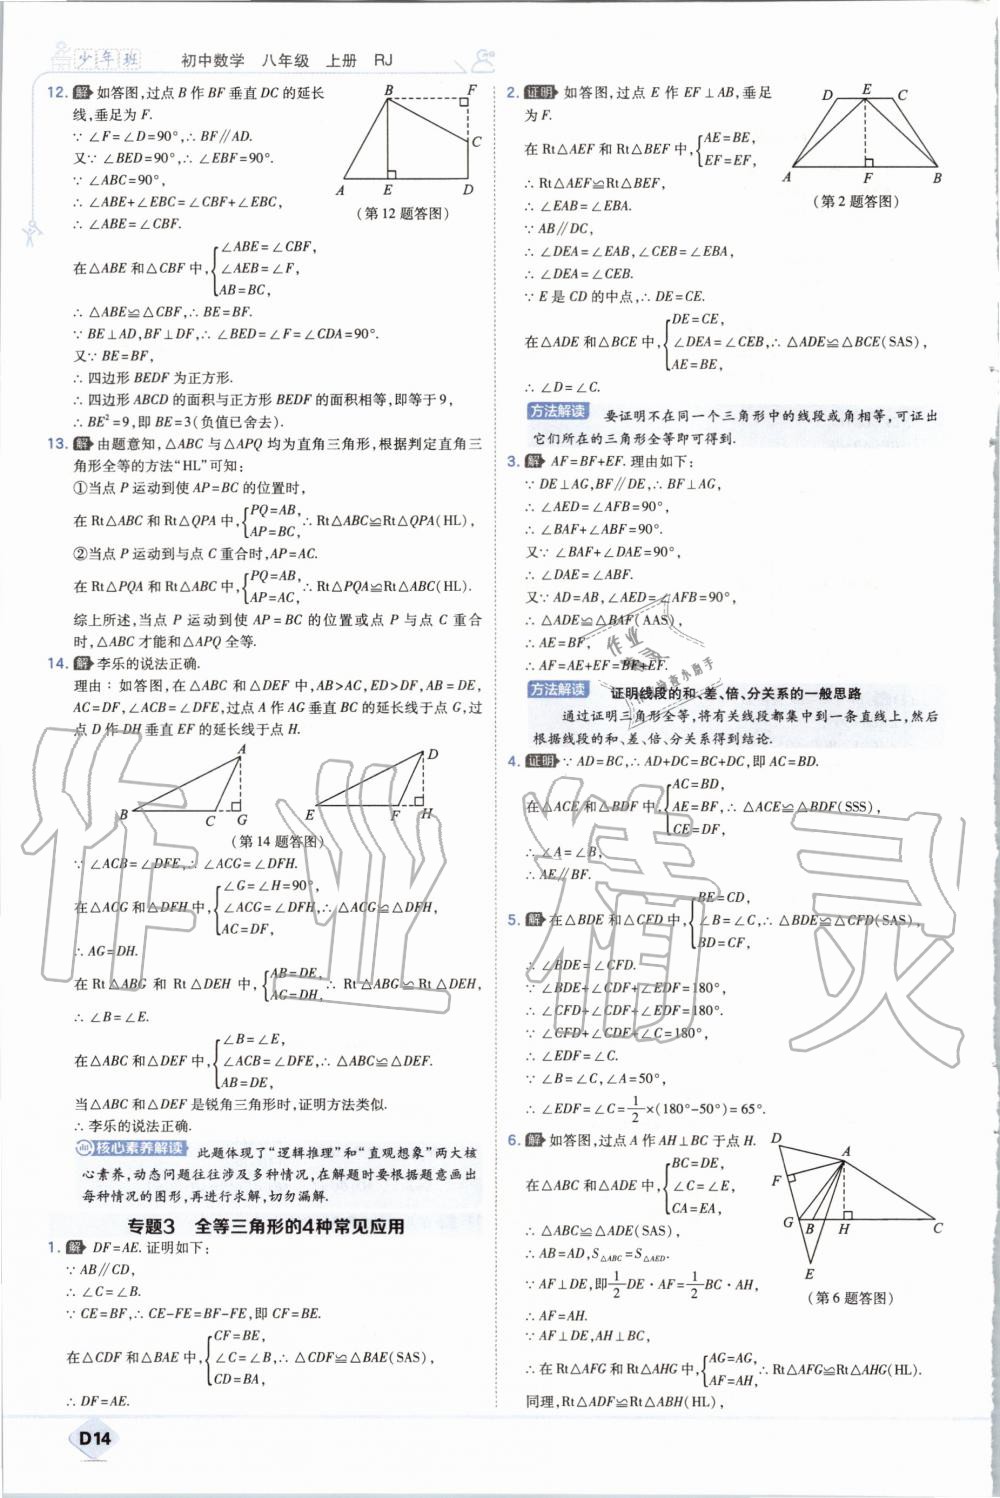 少年班 初中数学 八年级 上册 RJ
12. 解 如答图,过点 B 作 BF 垂直 DC 的延长
线,垂足为 F.
∵ ∠F=∠D=90°,∴ BF∥AD.
又∵ ∠BED=90°,∴ ∠EBF=90°.
∵ ∠ABC=90°,
∴ ∠ABE+∠EBC=∠CBF+∠EBC,
∴ ∠ABE=∠CBF.
B F C A E D
(第 12 题答图)
∠ABE=∠CBF,
在△ABE 和△CBF 中, ∠AEB=∠F,
AB=BC,
∴ △ABE≌△CBF,∴ BE=BF.
∵ BE⊥AD,BF⊥DF,∴ ∠BED=∠F=∠CDA=90°.
又∵ BE=BF,
∴ 四边形 BEDF 为正方形.
∴ 四边形 ABCD 的面积与正方形 BEDF 的面积相等,即等于 9,
∴ BE²=9,即 BE=3(负值已舍去).
13. 解 由题意知,△ABC 与△APQ 均为直角三角形,根据判定直角三
角形全等的方法“HL”可知:
①当点 P 运动到使 AP=BC 的位置时,
在 Rt△ABC 和 Rt△QPA 中,{PQ=AB, AP=BC,∴ Rt△ABC≌Rt△QPA(HL),
②当点 P 运动到与点 C 重合时,AP=AC.
在 Rt△PQA 和 Rt△ABC 中,{PQ=AB, AP=AC,∴ Rt△PQA≌Rt△ABC(HL).
综上所述,当点 P 运动到使 AP=BC 的位置或点 P 与点 C 重合
时,△ABC 才能和△APQ 全等.
14. 解 李乐的说法正确.
理由:如答图,在△ABC 和△DEF 中,AB>AC,ED>DF,AB=DE,
AC=DF,∠ACB=∠DFE,过点 A 作 AG 垂直 BC 的延长线于点 G,过
点 D 作 DH 垂直 EF 的延长线于点 H.
A B C G D E F H
(第 14 题答图)
∵ ∠ACB=∠DFE,∴ ∠ACG=∠DFH.
∠G=∠H=90°,
在△ACG 和△DFH 中, ∠ACG=∠DFH,∴ △ACG≌△DFH,
AC=DF,
∴ AG=DH.
在 Rt△ABG 和 Rt△DEH 中,{AB=DE, AG=DH,∴ Rt△ABG≌Rt△DEH,
∴ ∠B=∠E.
∠B=∠E,
在△ABC 和△DEF 中, ∠ACB=∠DFE,∴ △ABC≌△DEF.
AB=DE,
当△ABC 和△DEF 是锐角三角形时,证明方法类似.
∴ 李乐的说法正确.
核心素养解读 此题体现了“逻辑推理”和“直观想象”两大核
心素养,动态问题往往涉及多种情况,在解题时要根据题意画出
每种情况的图形,再进行求解,切勿漏解.
专题3 全等三角形的4种常见应用
1. 解 DF=AE.证明如下:
∵ AB∥CD,
∴ ∠C=∠B.
∵ CE=BF,∴ CE-FE=BF-FE,即 CF=BE.
CF=BE,
在△CDF 和△BAE 中, ∠C=∠B,∴ △CDF≌△BAE(SAS),
CD=BA,
∴ DF=AE.
D14
2. 证明 如答图,过点 E 作 EF⊥AB,垂足
为 F.
在 Rt△AEF 和 Rt△BEF 中,{AE=BE, EF=EF,
∴ Rt△AEF≌Rt△BEF,
∴ ∠EAB=∠EBA.
∵ AB∥DC,
∴ ∠DEA=∠EAB,∠CEB=∠EBA,
∴ ∠DEA=∠CEB.
∵ E 是 CD 的中点,∴ DE=CE.
D E C A F B
(第 2 题答图)
DE=CE,
在△ADE 和△BCE 中, ∠DEA=∠CEB,∴ △ADE≌△BCE(SAS),
AE=BE,
∴ ∠D=∠C.
方法解读 要证明不在同一个三角形中的线段或角相等,可证出
它们所在的三角形全等即可得到.
3. 解 AF=BF+EF.理由如下:
∵ DE⊥AG,BF∥DE,∴ BF⊥AG,
∴ ∠AED=∠AFB=90°,
∴ ∠BAF+∠ABF=90°.
又∵ ∠BAF+∠DAE=90°,
∴ ∠DAE=∠ABF.
又∵ AD=AB,∠AED=∠AFB=90°,
∴ △ADE≌△BAF(AAS),
∴ AE=BF,
∴ AF=AE+EF=BF+EF.
方法解读 证明线段的和、差、倍、分关系的一般思路
通过证明三角形全等,将有关线段都集中到一条直线上,然后
根据线段的和、差、倍、分关系得到结论.
4. 证明 ∵ AD=BC,∴ AD+DC=BC+DC,即 AC=BD.
AC=BD,
在△ACE 和△BDF 中, AE=BF,∴ △ACE≌△BDF(SSS),
CE=DF,
∴ ∠A=∠B,
∴ AE∥BF.
BE=CD,
5. 解 在△BDE 和△CFD 中, ∠B=∠C,∴ △BDE≌△CFD(SAS),
BD=CF,
∴ ∠BDE=∠CFD.
∵ ∠BDE+∠CDF+∠EDF=180°,
∴ ∠CFD+∠CDF+∠EDF=180°.
∵ ∠CFD+∠CDF+∠C=180°,
∴ ∠EDF=∠C.
∵ ∠B=∠C,∠A=50°,
∴ ∠EDF=∠C=1/2×(180°-50°)=65°.
6. 解 如答图,过点 A 作 AH⊥BC 于点 H.
BC=DE,
在△ABC 和△ADE 中, ∠C=∠E,
CA=EA,
∴ △ABC≌△ADE(SAS),
∴ AB=AD,S△ABC=S△AED.
∵ AF⊥DE,即1/2DE·AF=1/2BC·AH,
∴ AF=AH.
∵ AF⊥DE,AH⊥BC,
D A F G B H C E
(第 6 题答图)
∴ 在 Rt△AFG 和 Rt△AHG 中,{AG=AG, AF=AH,∴ Rt△AFG≌Rt△AHG(HL).
同理,Rt△ADF≌Rt△ABH(HL),
作业精灵